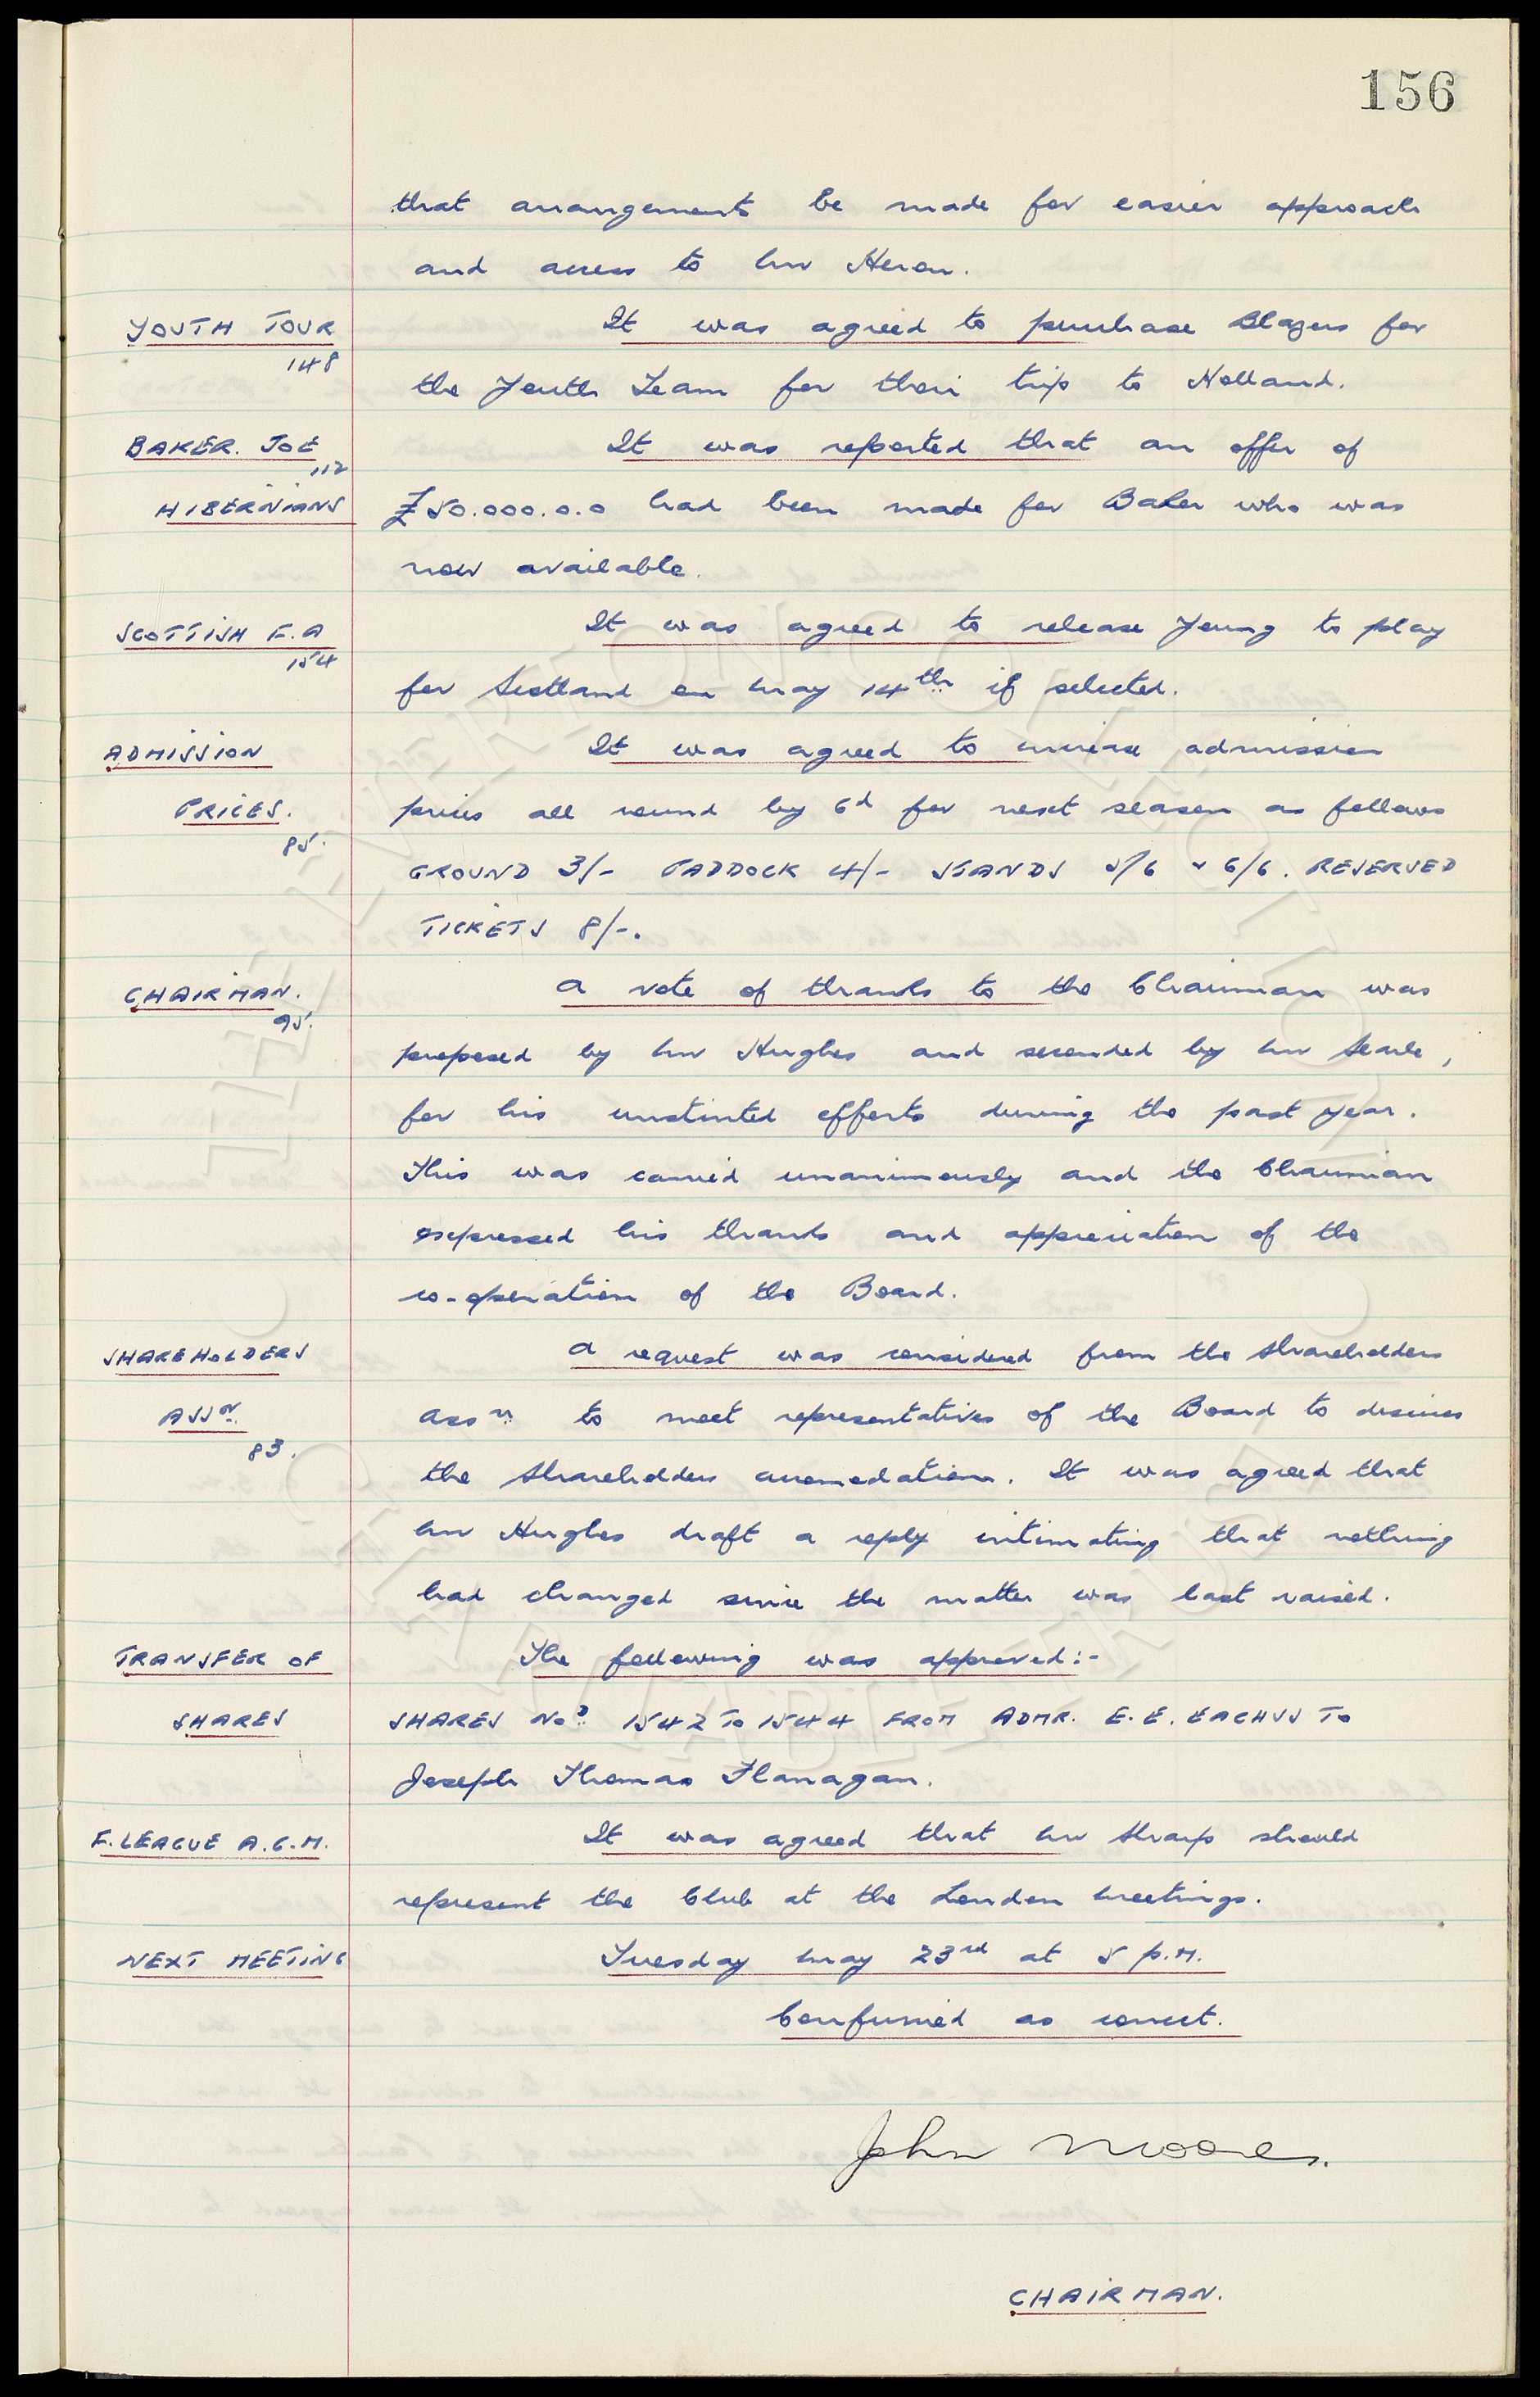 156
that arrangements be made for easier approach
and access to Mr Heron.
YOUTH TOUR It was agreed to purchase Blazers for
148
the Youth Team for their trip to Holland.
BAKER. JOE It was reported that an offer of
112
HIBERNIANS £50.000.0.0 had been made for Baker who was
now available.
SCOTTISH F.A It was agreed to release Young to play
154
for Scotland on May 14th if selected.
ADMISSION It was agreed to increase admission
PRICES. prices all round by 6d for next season as follows
85.
GROUND 3/- PADDOCK 4/- STANDS 5/6 & 6/6. RESERVED
TICKETS 8/-.
CHAIRMAN. A vote of thanks to the Chairman was
95.
proposed by Mr Hughes and seconded by Mr Searle,
for his unstinted efforts during the past year.
This was carried unanimously and the Chairman
expressed his thanks and appreciation of the
co-operation of the Board.
SHAREHOLDERS A request was considered from the Shareholders
ASSN. Assn to meet representatives of the Board to discuss
83.
the Shareholders accomodation. It was agreed that
Mr Hughes draft a reply intimating that nothing
had changed since the matter was last raised.
TRANSFER OF The following was approved:-
SHARES SHARES Nos 1542 To 1544 FROM ADMR. E.E. EACHUS To
Joseph Thomas Flanagan.
F.LEAGUE A.G.M. It was agreed that Mr Sharp should
represent the Club at the London Meetings.
NEXT MEETING Tuesday May 23rd at 5 p.m.
Confirmed as correct.
John Moores.
CHAIRMAN.